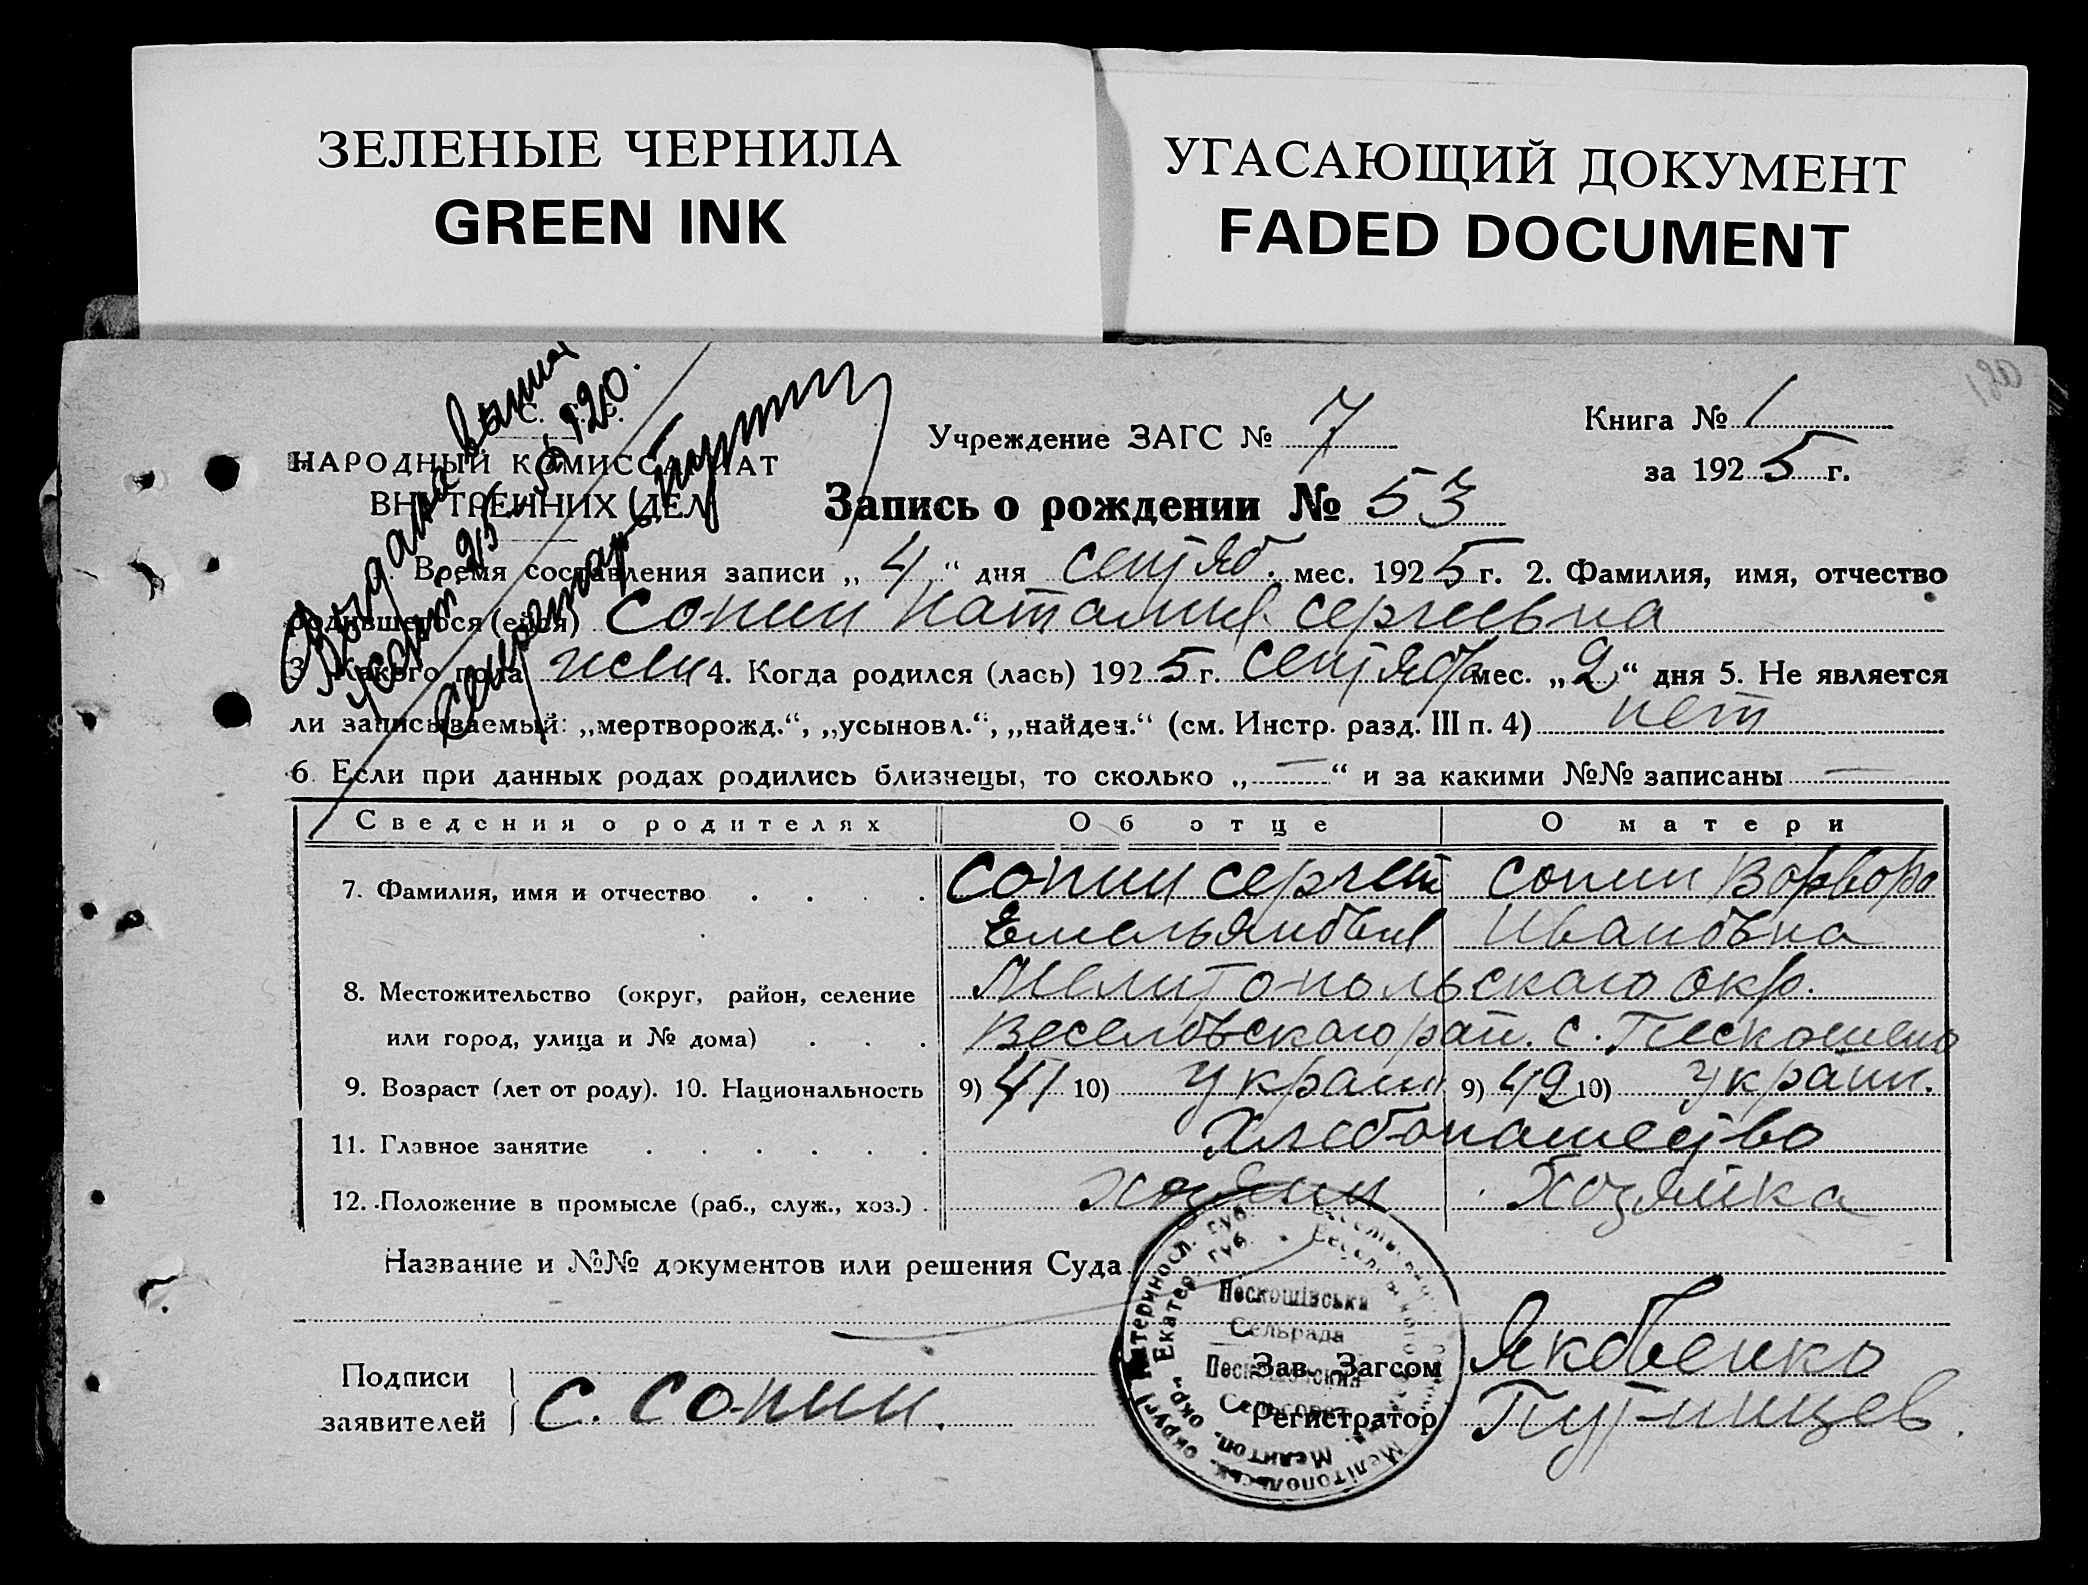 ЗЕЛЕНЫЕ ЧЕРНИЛА
GREEN INK
УГАСАЮЩИЙ ДОКУМЕНТ
FADED DOCUMENT
Выдана выпись
НАРОДНЫЙ КОМИССАРИАТ
ВНУТРЕННИХ ДЕЛ
Секретарь
Учреждение ЗАГС № 7
Книга № 1
за 1925 г.
Запись о рождении № 53
Время составления записи „4“ дня сентяб. мес. 1925 г. 2. Фамилия, имя, отчество
родившегося (ейся) Сопин Наталия Сергиевна
3. Какого пола жен 4. Когда родился (лась) 1925 г. сентябр мес. „2“ дня 5. Не является
ли записываемый: „мертворожд.“, „усыновл.“, „найден.“ (см. Инстр. разд. III п. 4) нет
6. Если при данных родах родились близнецы, то сколько „—“ и за какими №№ записаны —
Сведения о родителях Об отце О матери
7. Фамилия, имя и отчество Сопин Сергей Сопин Варвара
Емельянович Ивановна
8. Местожительство (округ, район, селение Мелитопольскаго окр.
или город, улица и № дома) Веселовскаго рай. с. Пескошено
9. Возраст (лет от роду). 10. Национальность 9) 41 10) Украин 9) 42 10) Украин.
11. Главное занятие Хлебопашество
12. Положение в промысле (раб., служ., хоз.) хозяин Хозяйка
Название и №№ документов или решения Суда
Пескошівська
Сельрада
Сельсовет
Мелітопольськ. округі Катеринosл. губ.
Мелитоп. окр. Екатер. губ.
Подписи
заявителей С. Сопин.
Зав. Загсом Яковенко
Регистратор Путинцев.